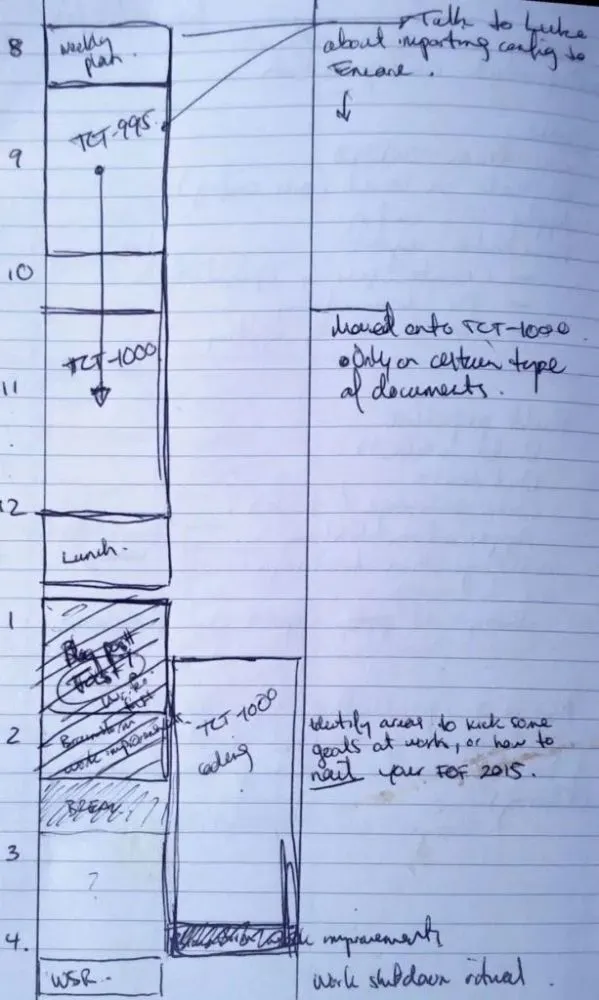 8
weekly
plan.
Talk to Luke
about importing config to
TCT-995
9
10
moved onto TCT-1000
TCT-1000
• Only on certain type
of documents.
11
12
Lunch.
1
Blog post
TCT-1000
coding
2
Brainstorm
work improvements
identify areas to kick some
goals at work, or how to
nail your FOF 2015.
BREAK
3
?
4.
improvements
WSR.
work shutdown ritual.